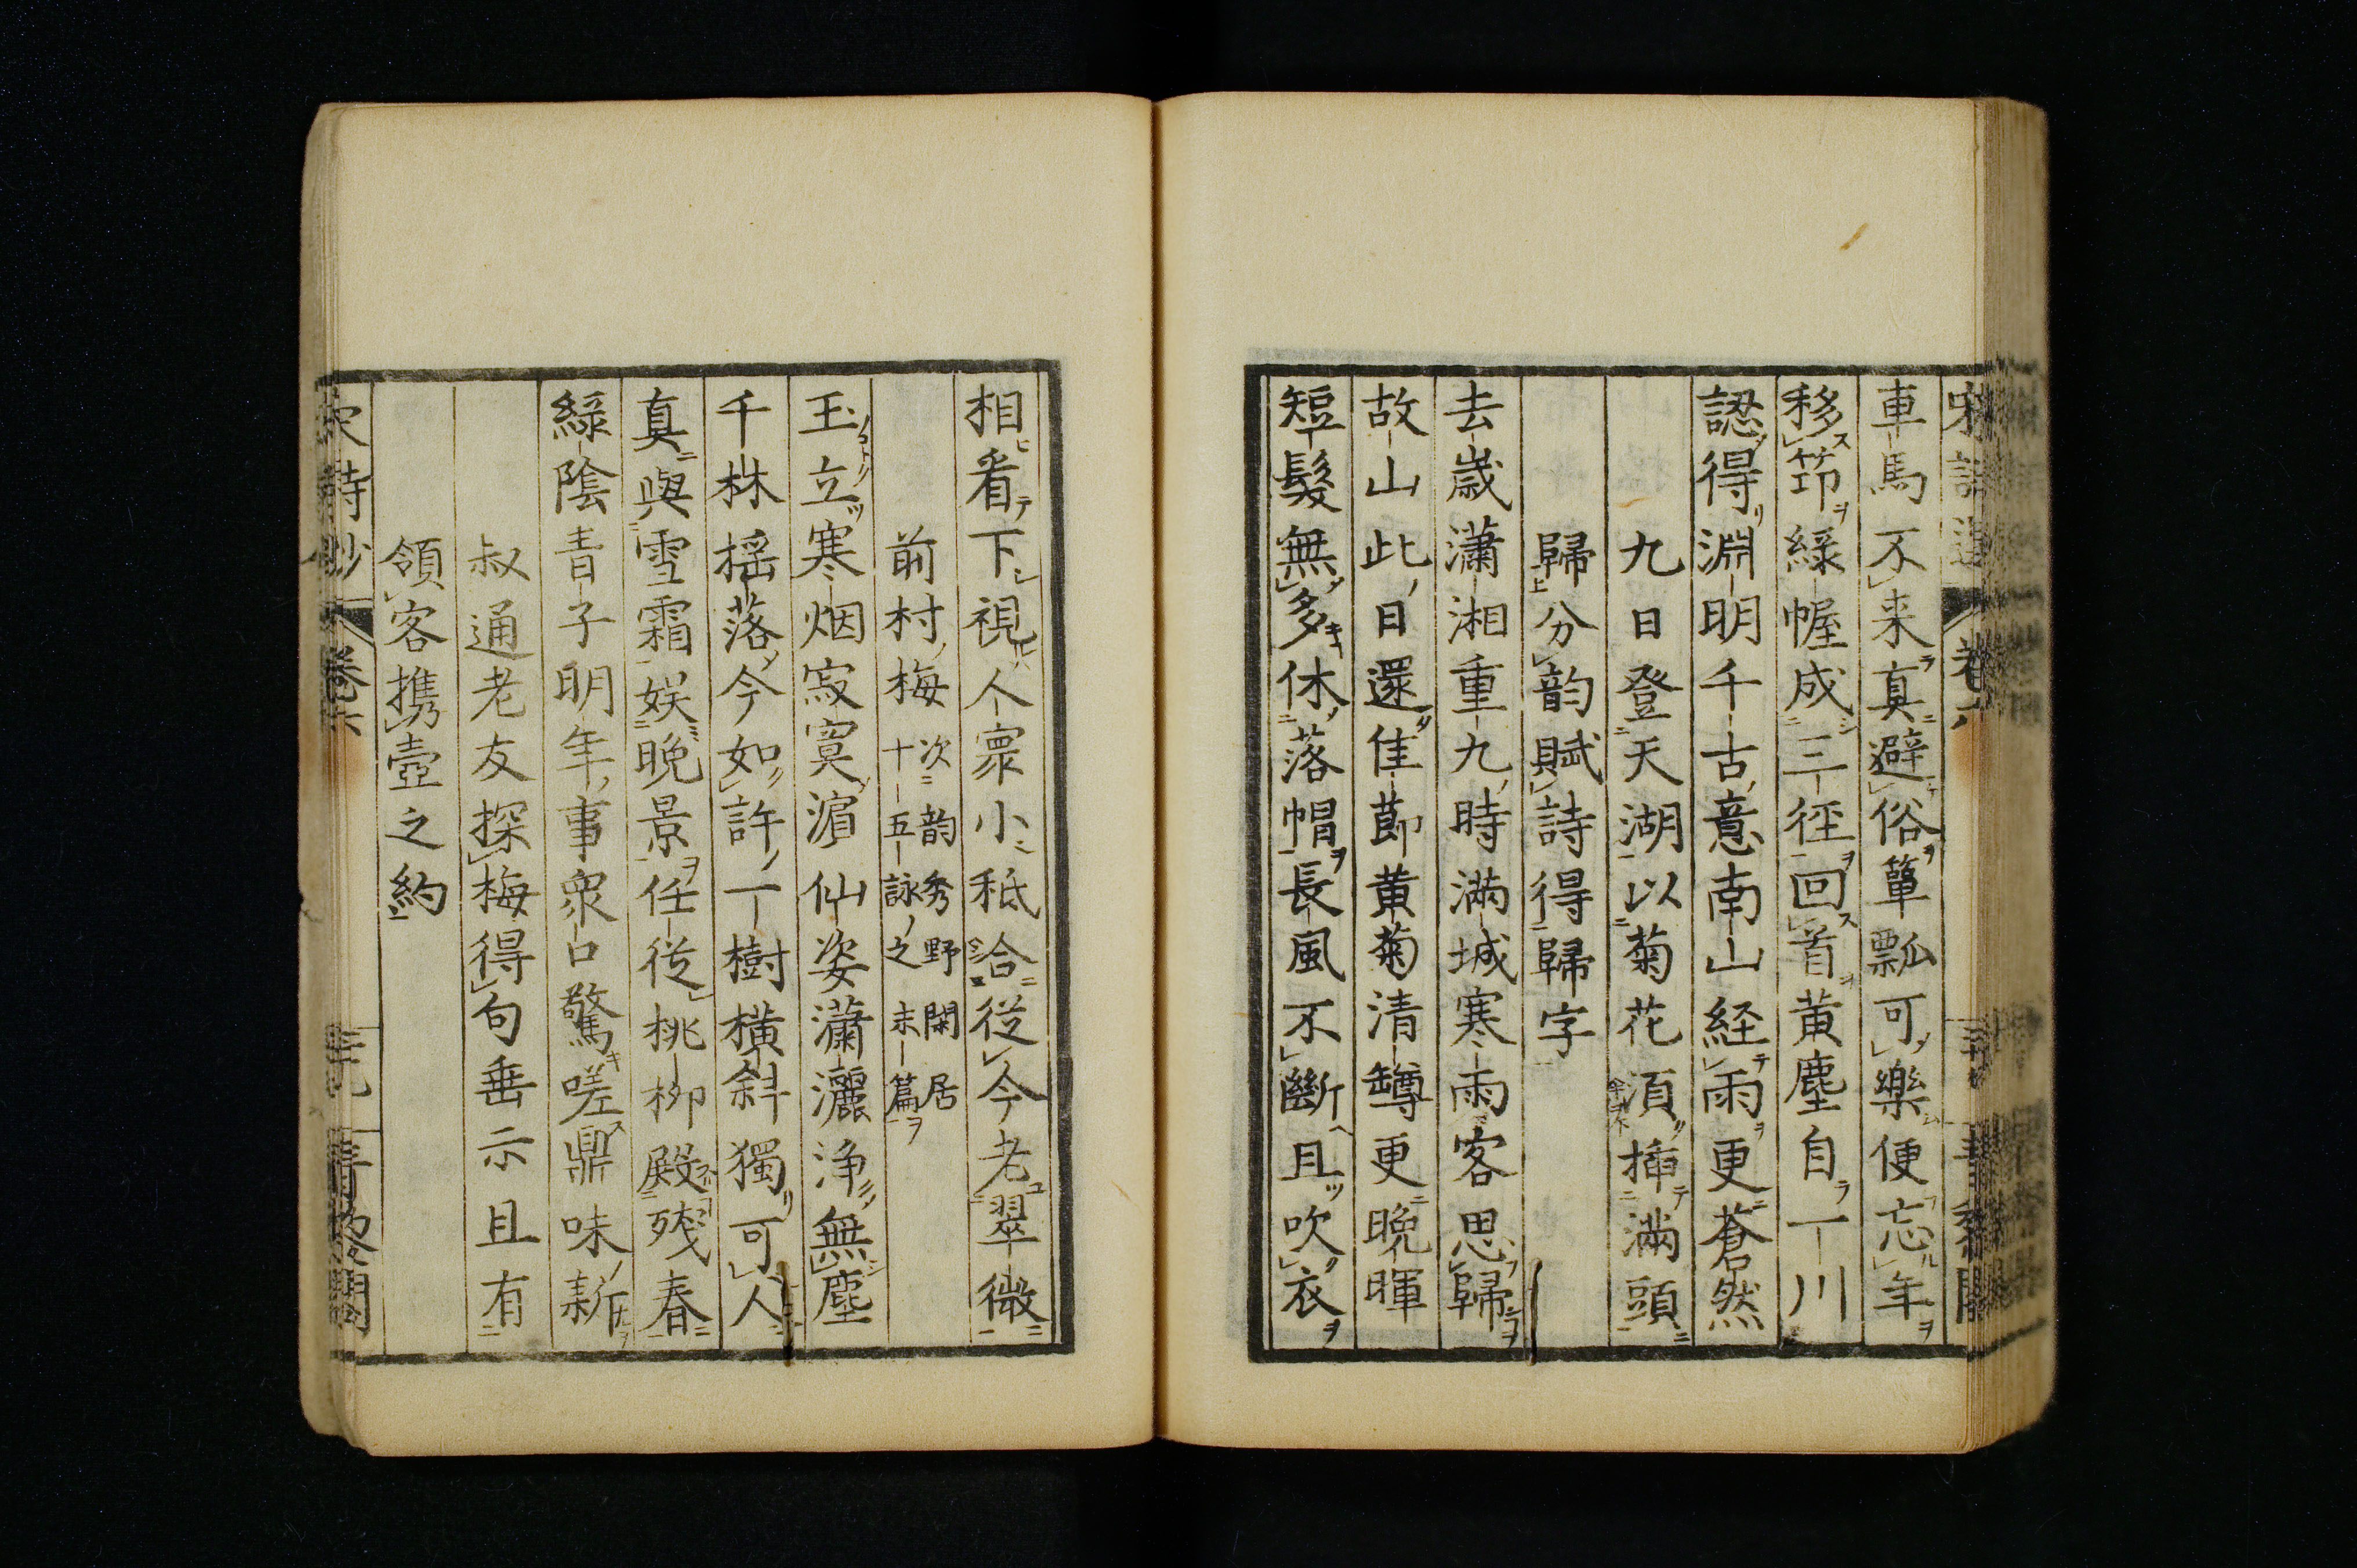 車馬不来真避俗簞瓢可樂便忘年
移笻綠幄成三徑回首黄塵自一川
認得淵明千古意南山経雨更蒼然
九日登天湖以菊花須揷滿頭
歸分韵賦詩得歸字
去歲瀟湘重九時滿城寒雨客思歸
故山此日還佳節黄菊清罇更晩暉
短髮無多休落帽長風不斷且吹衣
相看下視人寰小秪合從今老翠微
前村梅 次韵秀野閑居十五詠之末篇
玉立寒烟寂寞濵仙姿瀟灑浄無塵
千林揺落今如許一樹横斜獨可人
真與雪霜娱晩景任從桃柳殿殘春
綠陰青子明年事衆口驚嗟鼎味新
叔通老友探梅得句垂示且有
領客携壺之約
卷六